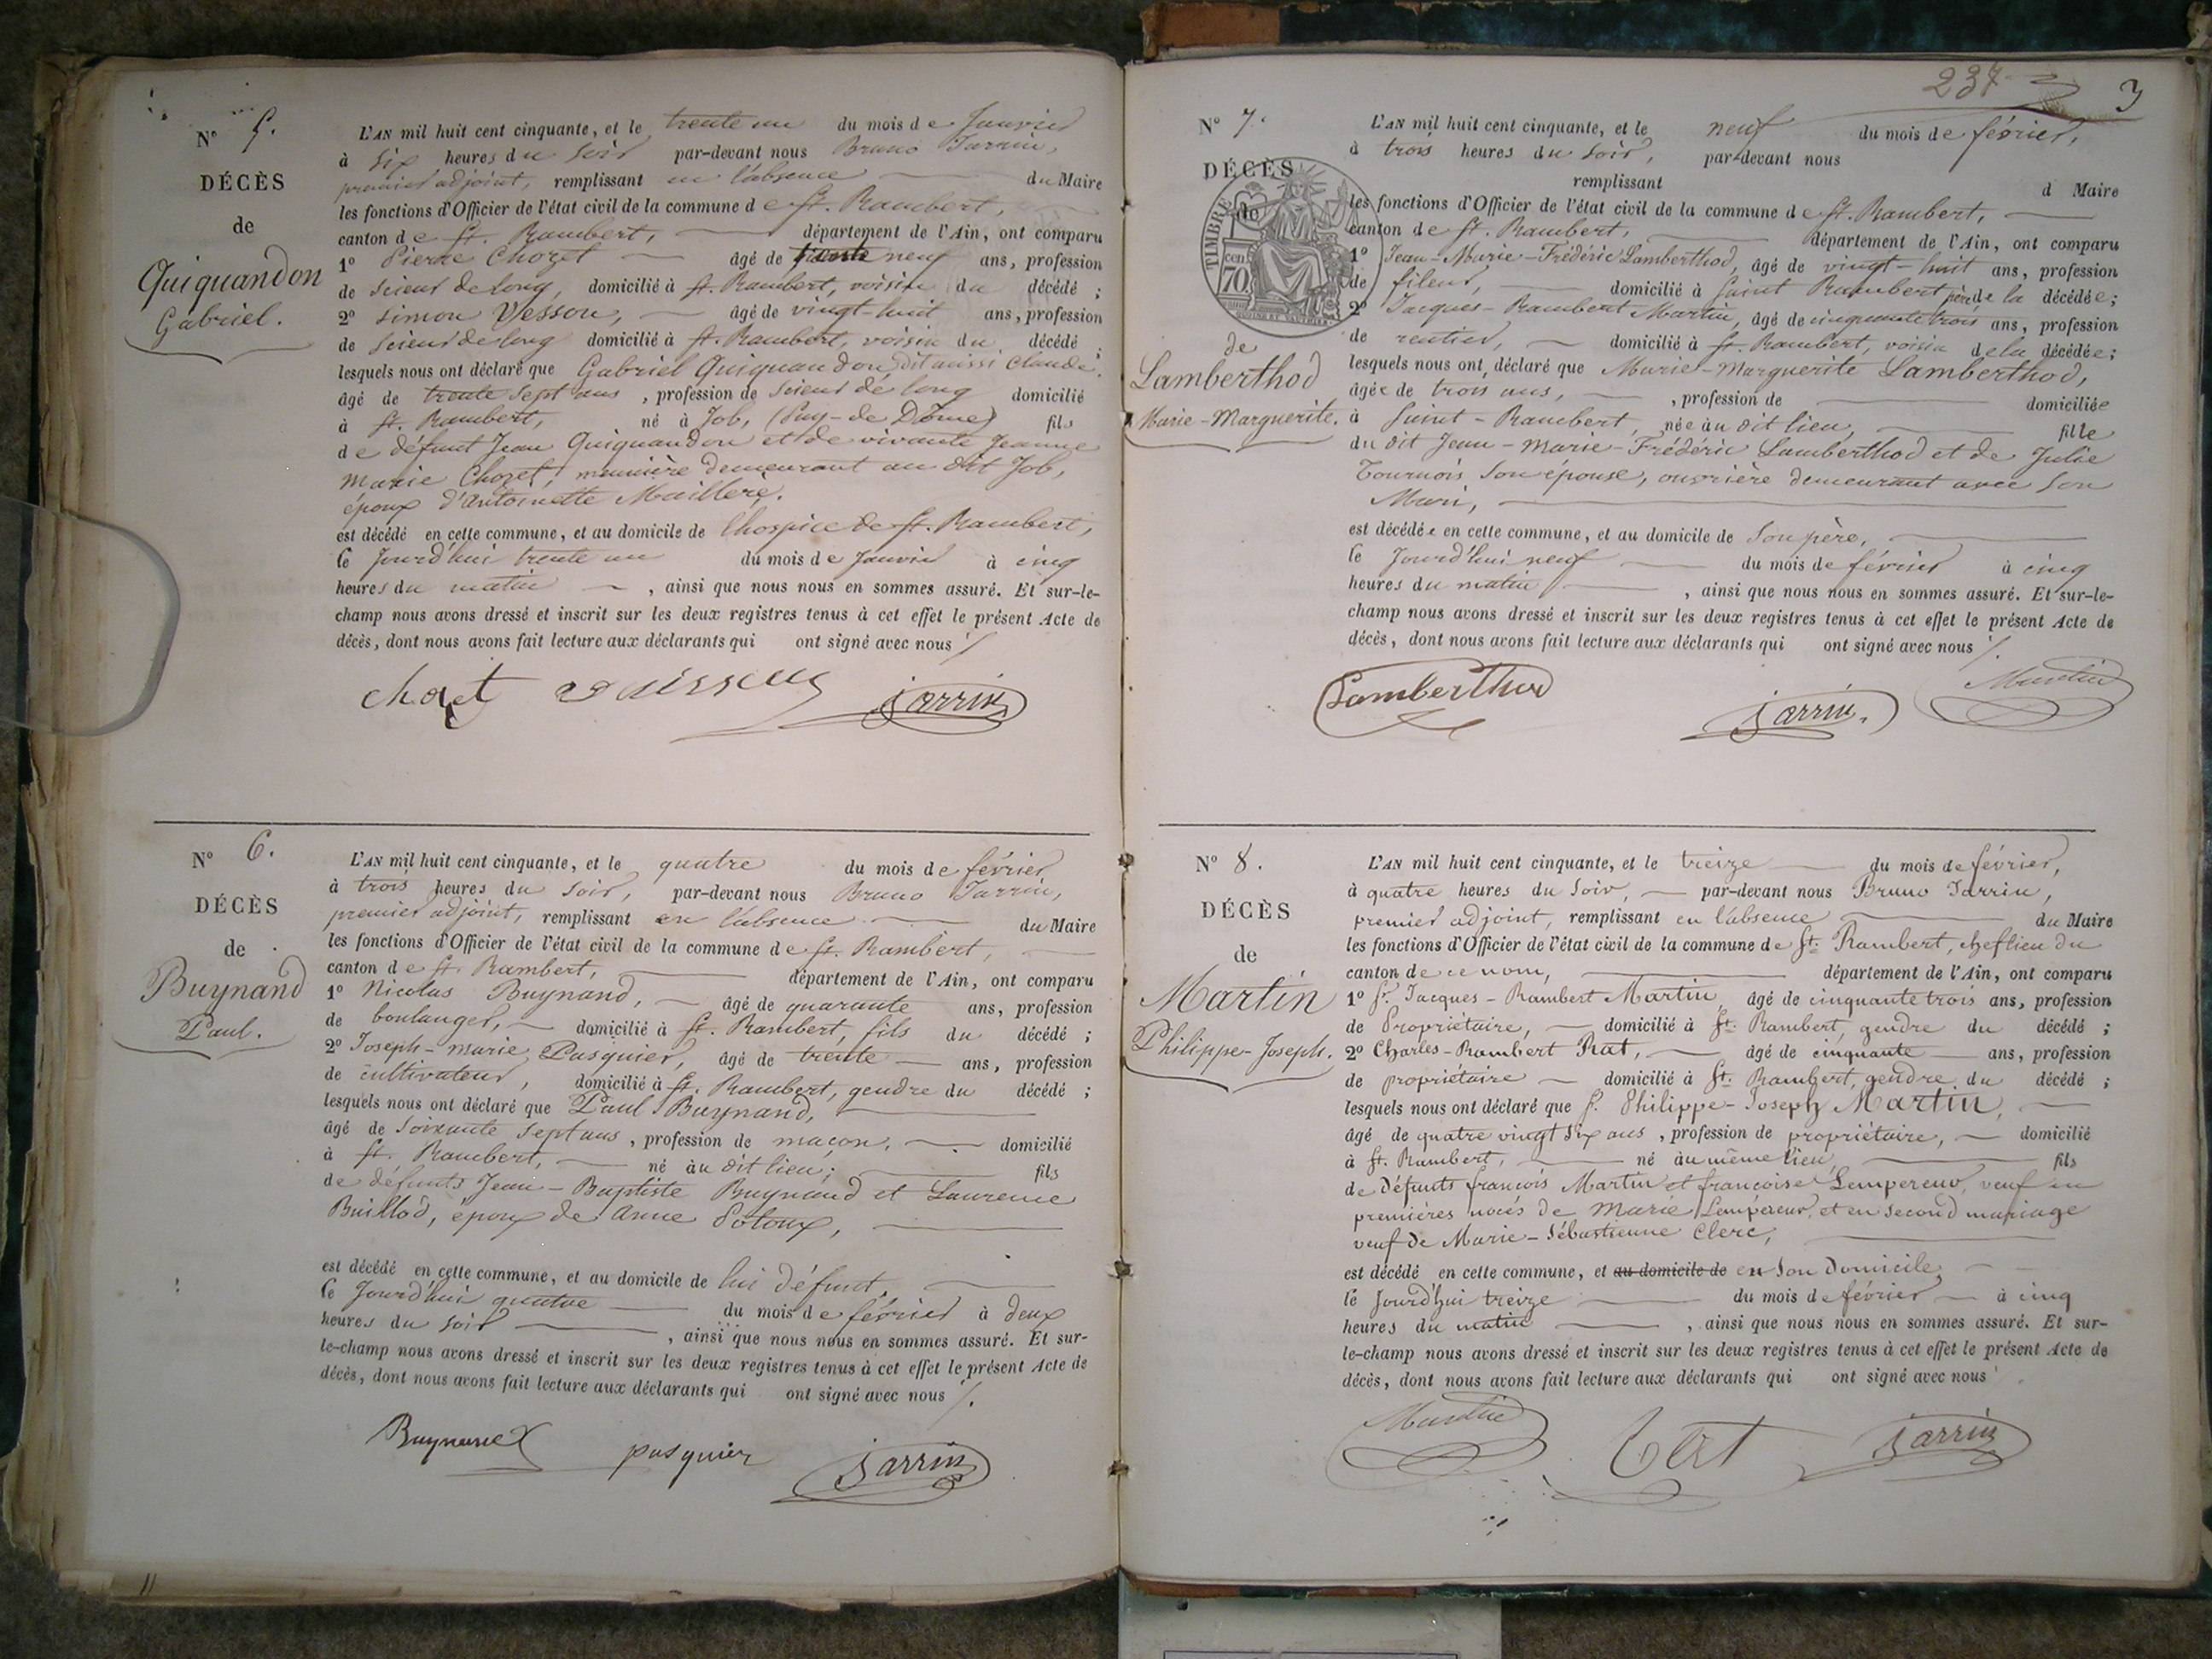 N° 5.
DÉCÈS
de
Quiquandon
Gabriel.
L'AN mil huit cent cinquante, et le trente un du mois de Janvier
à six heures du soir par-devant nous Bruno Jarrin,
premier adjoint, remplissant en l'absence du Maire
les fonctions d'Officier de l'état civil de la commune de St. Rambert,
canton de St. Rambert, département de l'Ain, ont comparu
1° Pierre Chozet âgé de neuf ans, profession
de scieur de long, domicilié à St. Rambert, voisin du décédé ;
2° Simon Vesson, âgé de vingt-huit ans, profession
de scieur de long domicilié à St. Rambert, voisin du décédé ;
lesquels nous ont déclaré que Gabriel Quiquandon, dit aussi Claude,
âgé de trente sept ans, profession de scieur de long domicilié
à St. Rambert, né à Job, (Puy-de Dôme) fils
de défunt Jean Quiquandon et de vivante Jeanne
Marie Chozet, meunière demeurant au dit Job,
époux d'Antoinette Maillere.
est décédé en cette commune, et au domicile de l'hospice de St. Rambert,
le Jourd'hui trente un du mois de Janvier à cinq
heures du matin , ainsi que nous nous en sommes assuré. Et sur-le-
champ nous avons dressé et inscrit sur les deux registres tenus à cet effet le présent Acte de
décès, dont nous avons fait lecture aux déclarants qui ont signé avec nous ./.
jarrin
N° 6.
DÉCÈS
de
Buynand
Paul.
L'AN mil huit cent cinquante, et le quatre du mois de février
à trois heures du soir, par-devant nous Bruno Jarrin,
premier adjoint, remplissant en l'absence du Maire
les fonctions d'Officier de l'état civil de la commune de St. Rambert,
canton de St. Rambert, département de l'Ain, ont comparu
1° Nicolas Buynand, âgé de quarante ans, profession
de boulanger, domicilié à St. Rambert, fils du décédé ;
2° Joseph-Marie Pasquier, âgé de trente ans, profession
de cultivateur, domicilié à St. Rambert, gendre du décédé ;
lesquels nous ont déclaré que Paul Buynand,
âgé de soixante sept ans, profession de maçon, domicilié
à St. Rambert, né au dit lieu; fils
de défunts Jean-Baptiste Buynand et Laurence
Buillod, époux de Anne Poloux,
est décédé en cette commune, et au domicile de lui défunt,
le Jourd'hui quatre du mois de février à deux
heures du soir , ainsi que nous nous en sommes assuré. Et sur-
le-champ nous avons dressé et inscrit sur les deux registres tenus à cet effet le présent Acte de
décès, dont nous avons fait lecture aux déclarants qui ont signé avec nous ./.
Buynand pasquier jarrin
237 3
N° 7.
DÉCÈS
de
TIMBRE
70 cen
de
Lamberthod
Marie-Marguerite.
L'AN mil huit cent cinquante, et le neuf du mois de février,
à trois heures du soir, par-devant nous
remplissant d Maire
les fonctions d'Officier de l'état civil de la commune de St. Rambert,
canton de St. Rambert, département de l'Ain, ont comparu
1° Jean-Marie-Frédéric Lamberthod, âgé de vingt-huit ans, profession
de fileur, domicilié à Saint Rambert père de la décédée;
2° Jacques-Rambert Martin, âgé de cinquante trois ans, profession
de rentier, domicilié à St. Rambert, voisin de la décédée;
lesquels nous ont déclaré que Marie-Marguerite Lamberthod,
âgée de trois ans, , profession de domiciliée
à Saint-Rambert, née au dit lieu, fille
du dit Jean-Marie-Frédéric Lamberthod et de Julie
Tournois son épouse, ouvrière demeurant avec son
Mari,
est décédée en cette commune, et au domicile de son père,
le Jourd'hui neuf du mois de février à cinq
heures du matin , ainsi que nous nous en sommes assuré. Et sur-le-
champ nous avons dressé et inscrit sur les deux registres tenus à cet effet le présent Acte de
décès, dont nous avons fait lecture aux déclarants qui ont signé avec nous ./.
Lamberthod jarrin. Martin
N° 8.
DÉCÈS
de
Martin
Philippe-Joseph.
L'AN mil huit cent cinquante, et le treize du mois de février,
à quatre heures du soir, par-devant nous Bruno Jarrin,
premier adjoint, remplissant en l'absence du Maire
les fonctions d'Officier de l'état civil de la commune de St. Rambert, chef lieu du
canton de ce nom, département de l'Ain, ont comparu
1° Sr. Jacques-Rambert Martin, âgé de cinquante trois ans, profession
de Propriétaire, domicilié à St. Rambert, gendre du décédé ;
2° Charles-Rambert Rat, âgé de cinquante ans, profession
de propriétaire domicilié à St. Rambert, gendre du décédé ;
lesquels nous ont déclaré que S. Philippe-Joseph Martin,
âgé de quatre vingt six ans, profession de propriétaire, domicilié
à St. Rambert, né au même lieu, fils
de Défunts françois Martin et françoise Lempereur, veuf en
premières noces de Marie Lempereur, et en second mariage
veuf de Marie-Sébastienne Clerc,
est décédé en cette commune, et au domicile de en son domicile,
le Jourd'hui treize du mois de février à cinq
heures du matin , ainsi que nous nous en sommes assuré. Et sur-
le-champ nous avons dressé et inscrit sur les deux registres tenus à cet effet le présent Acte de
décès, dont nous avons fait lecture aux déclarants qui ont signé avec nous
Martin Rat jarrin